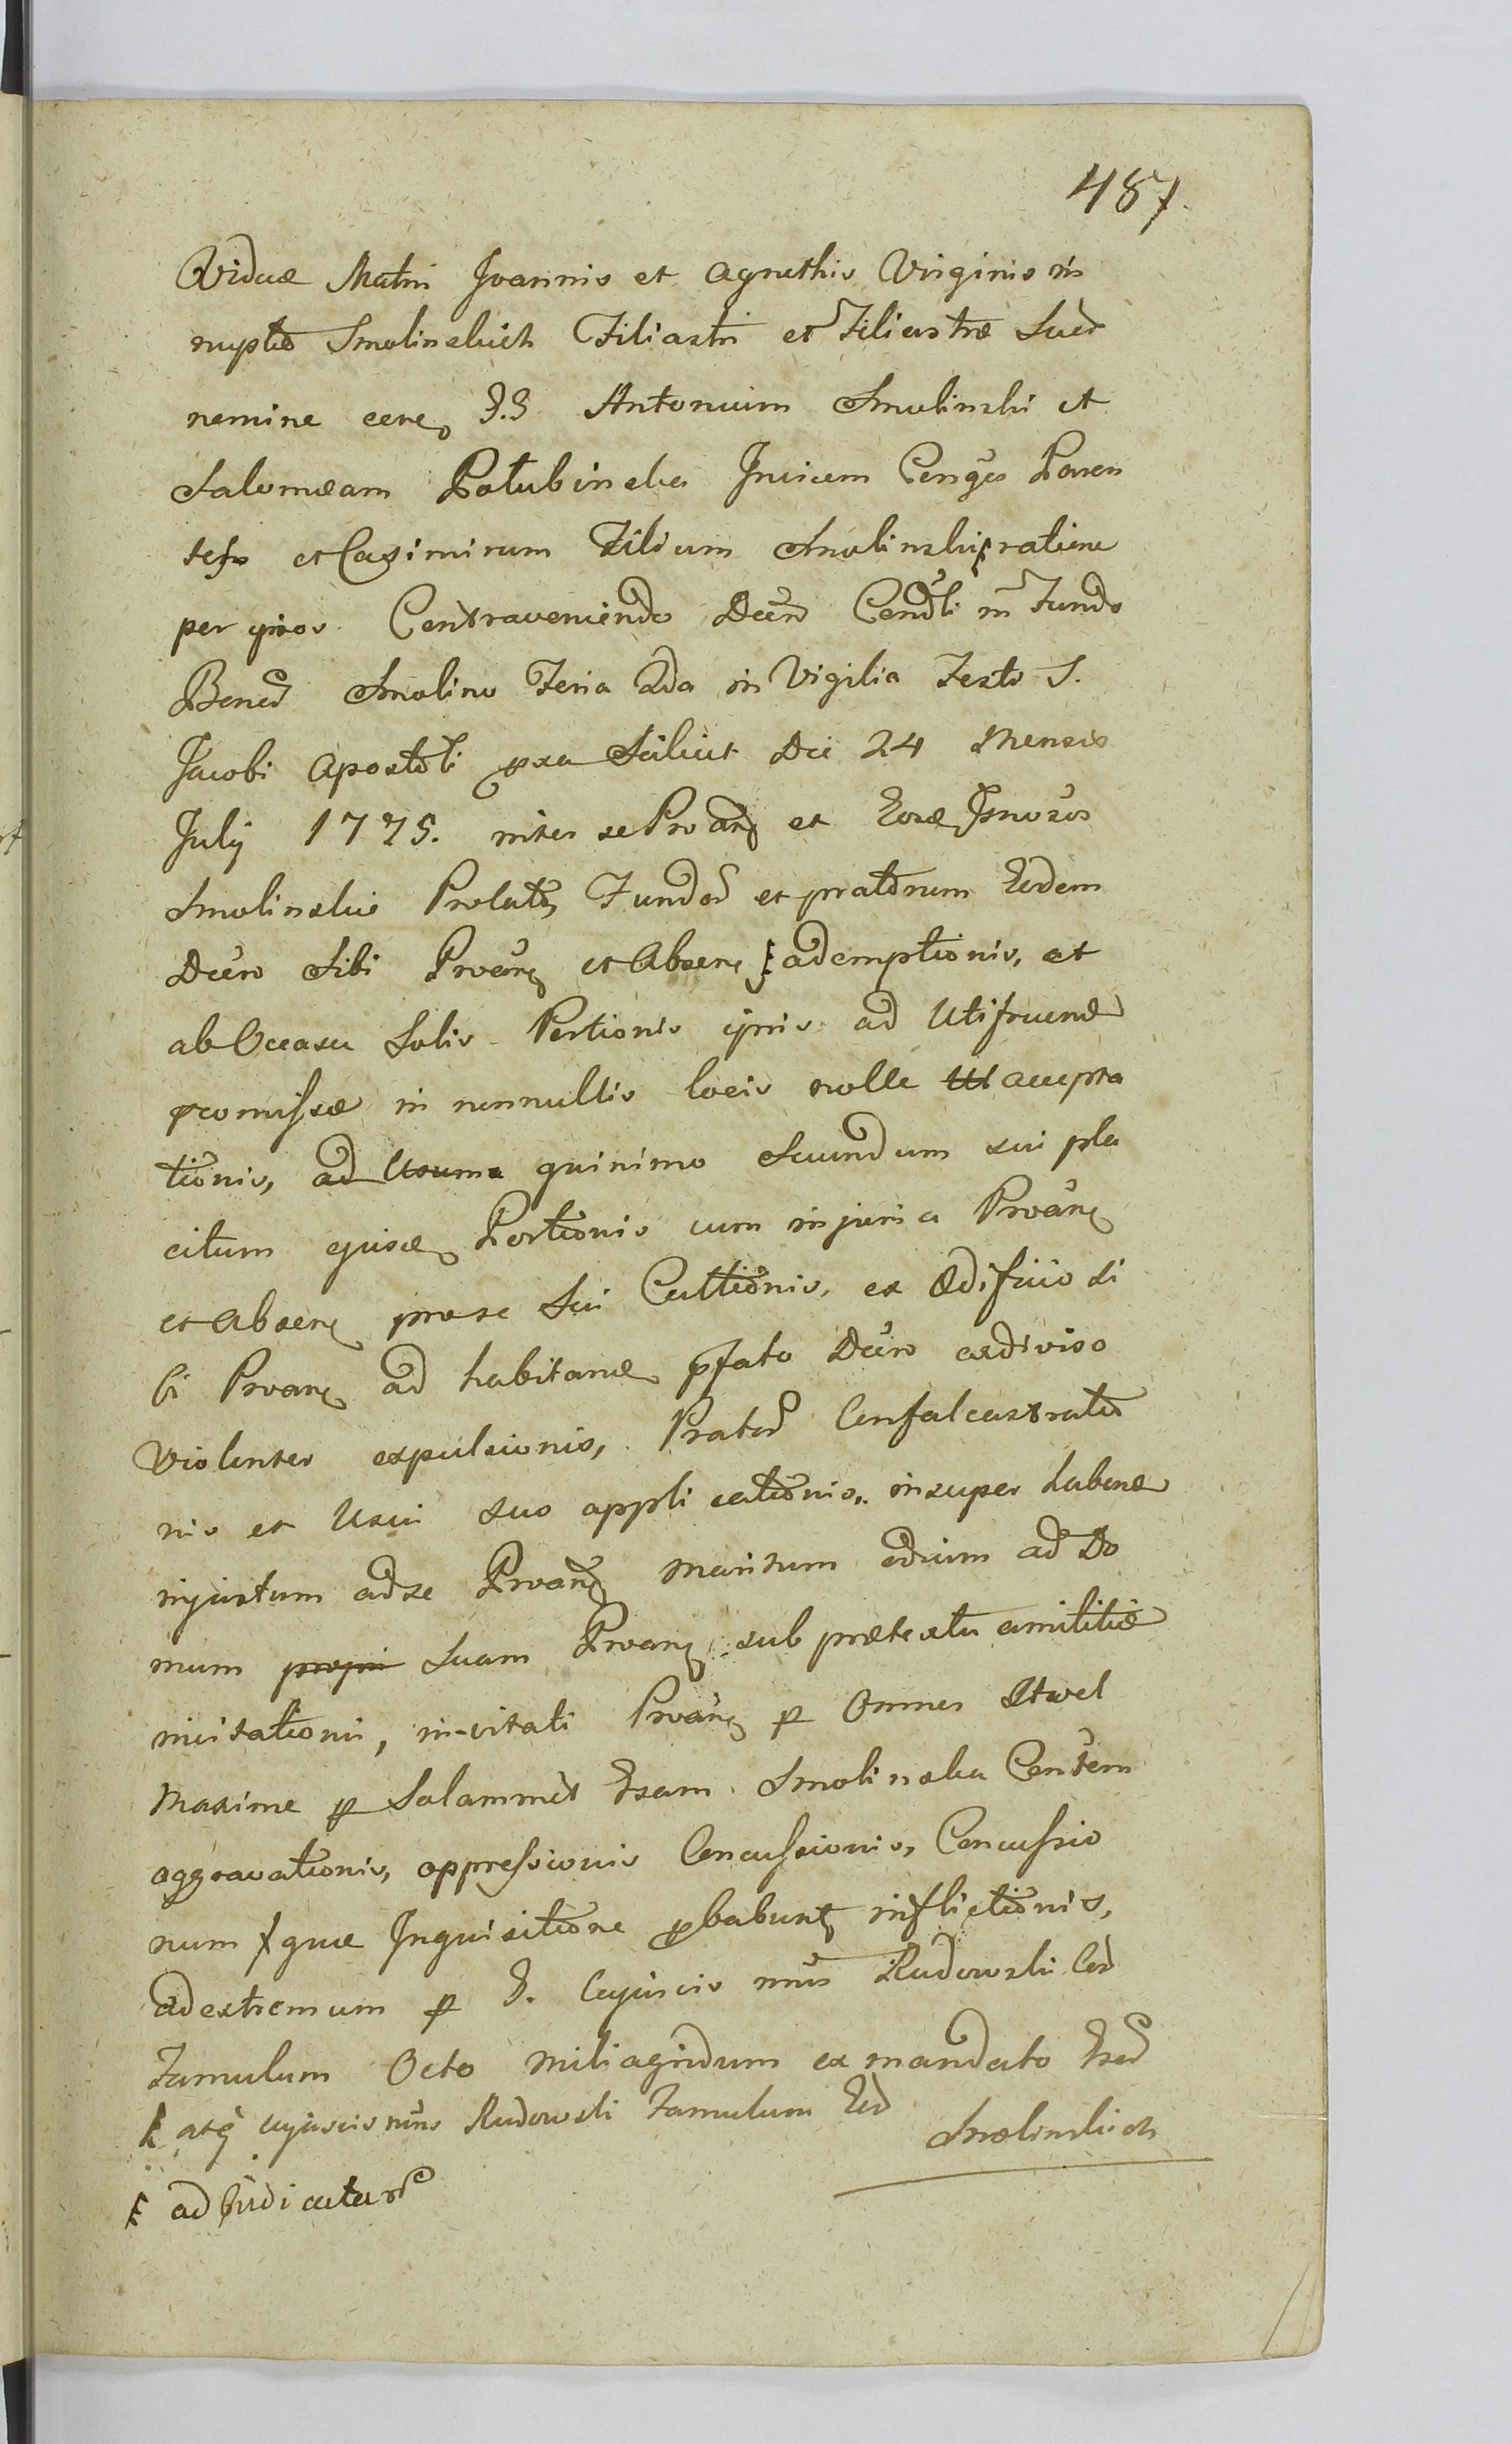 487.
Viduæ Matri Joannis et Agnethis Virginis in
nuptæ Smolinskich Filiastri et Filiastræ Suor
nemine eoreq G.G. Antonium Smolinski et
Salomeam Łotubinska Invicem Conges Paren
tes et Casimirum Filium Smolinskich ratione
per ipsos Contraveniendo Decro Condli in Fundo
Bonor Smolino Feria 2da in Vigilia Festo S.
Jacobi Apostoli pxa Scilicet Die 24 Mensis
July 1775. inter se Proang et Eosq
Smolinskie Prolato, Fundor et pratorum Eodem
Decro Sibi Proang et Abseng ademptionis, et
ab Occasu Solis Portionis ipsis ad Utifruend
promissæ in nonnullis locis nolle accepta
tionis, ad Usum quinimo Secundum sui pla
citum ejusq Portionis cum injuria Proang
et Abseng pro se Sui Cultionis, ex Ædificio si
bi Proang ad habitand pfato Decro exdiviso
Violenter expulsionis, Prator Confalcastratio
nis et Usui suo applicationis, insuper habend
injustum ad se Proang Maritum odium ad Do
mum propri Suam Proang sub prætextu amititiæ
invitationi, invitati Proang p Omnes Et vel
Maxime p Salommet Gsam Smolinska Contem
aggravationis, oppressionis Concussionis, Concussio
num que Inquisitione pbabunt inflictionis,
ad extremum p G. Cujusvis nuis Rudowski Cor
Famulum Octo Mili agirdum ex mandato Gsor
atq cujusvis nuis Rudowski Famulum Eor
Smolinskich
adjudicatar